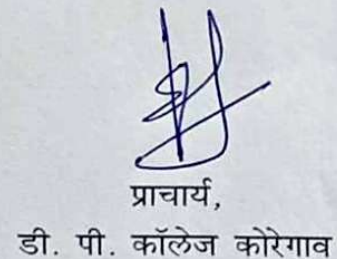 प्राचार्य,
डी. पी. कॉलेज कोरेगाव